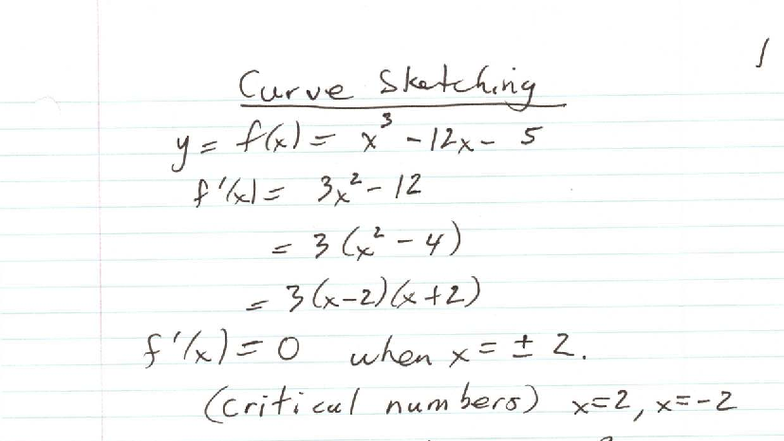 1
Curve Sketching
y = f(x) = x³ - 12x - 5
f'(x) = 3x² - 12
= 3(x² - 4)
= 3(x-2)(x+2)
f'(x) = 0 when x = ± 2.
(critical numbers) x=2, x=-2